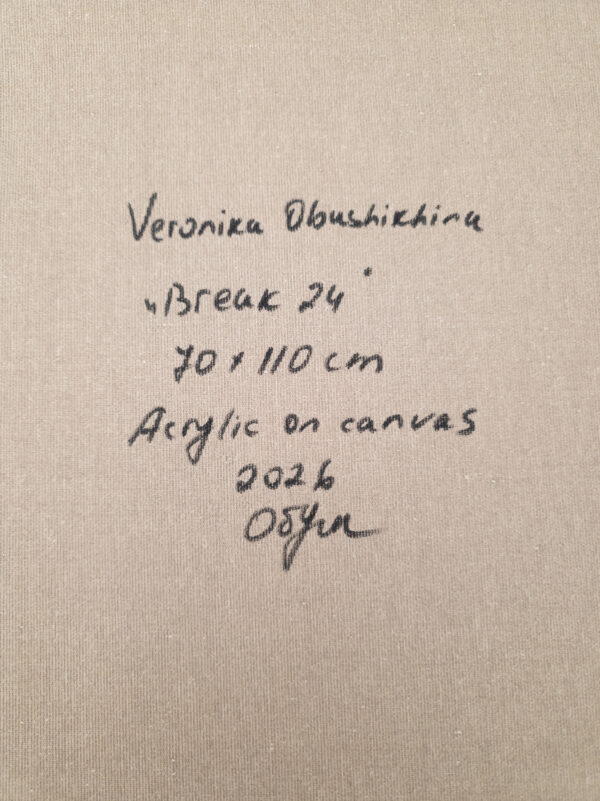 Veronika Obushikhina
„Break 24"
70 x 110 cm
Acrylic on canvas
2026